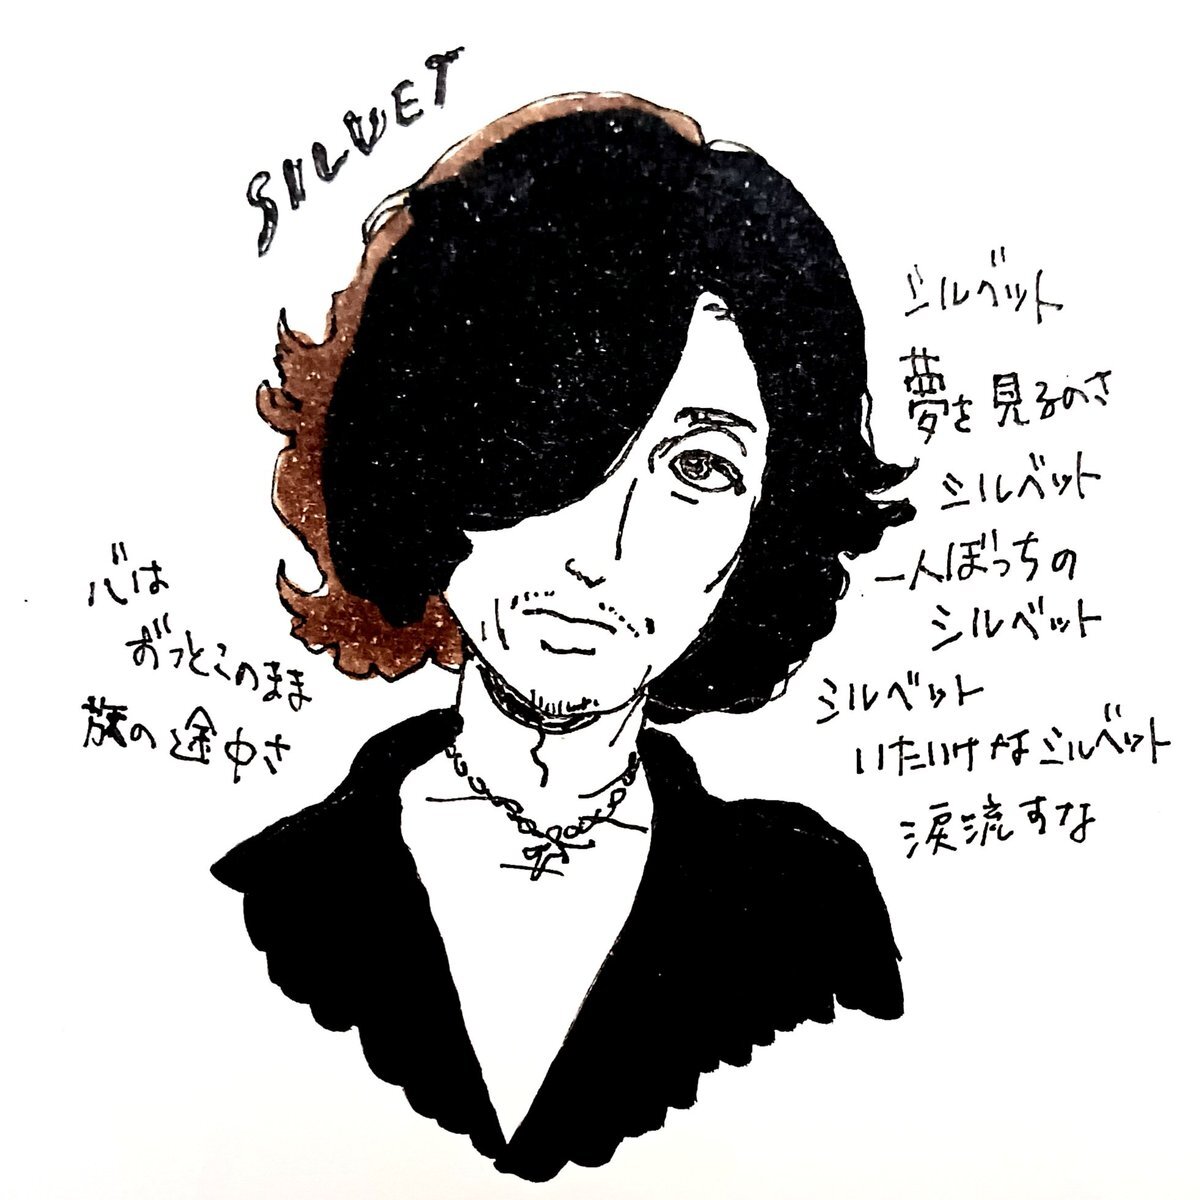 SILVET
シルベット
夢を見るのさ
シルベット
一人ぼっちの
シルベット
シルベット
いたいけなシルベット
涙流すな
心は
ずっとこのまま
旅の途中さ